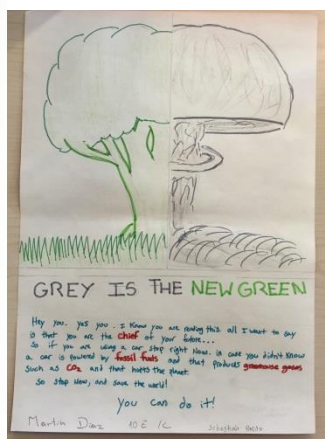 GREY IS THE NEW GREEN
Hey you. yes you. I know you are reading this. all I want to say
is that you are the chief of your future...
so if you are using a car stop right now. in case you didn't know
a car is powered by fossil fuels and that produces greenhouse gases
such as CO2 and that hurts the planet.
So stop now, and save the world!
you can do it!
Martin Diaz 10 E /C